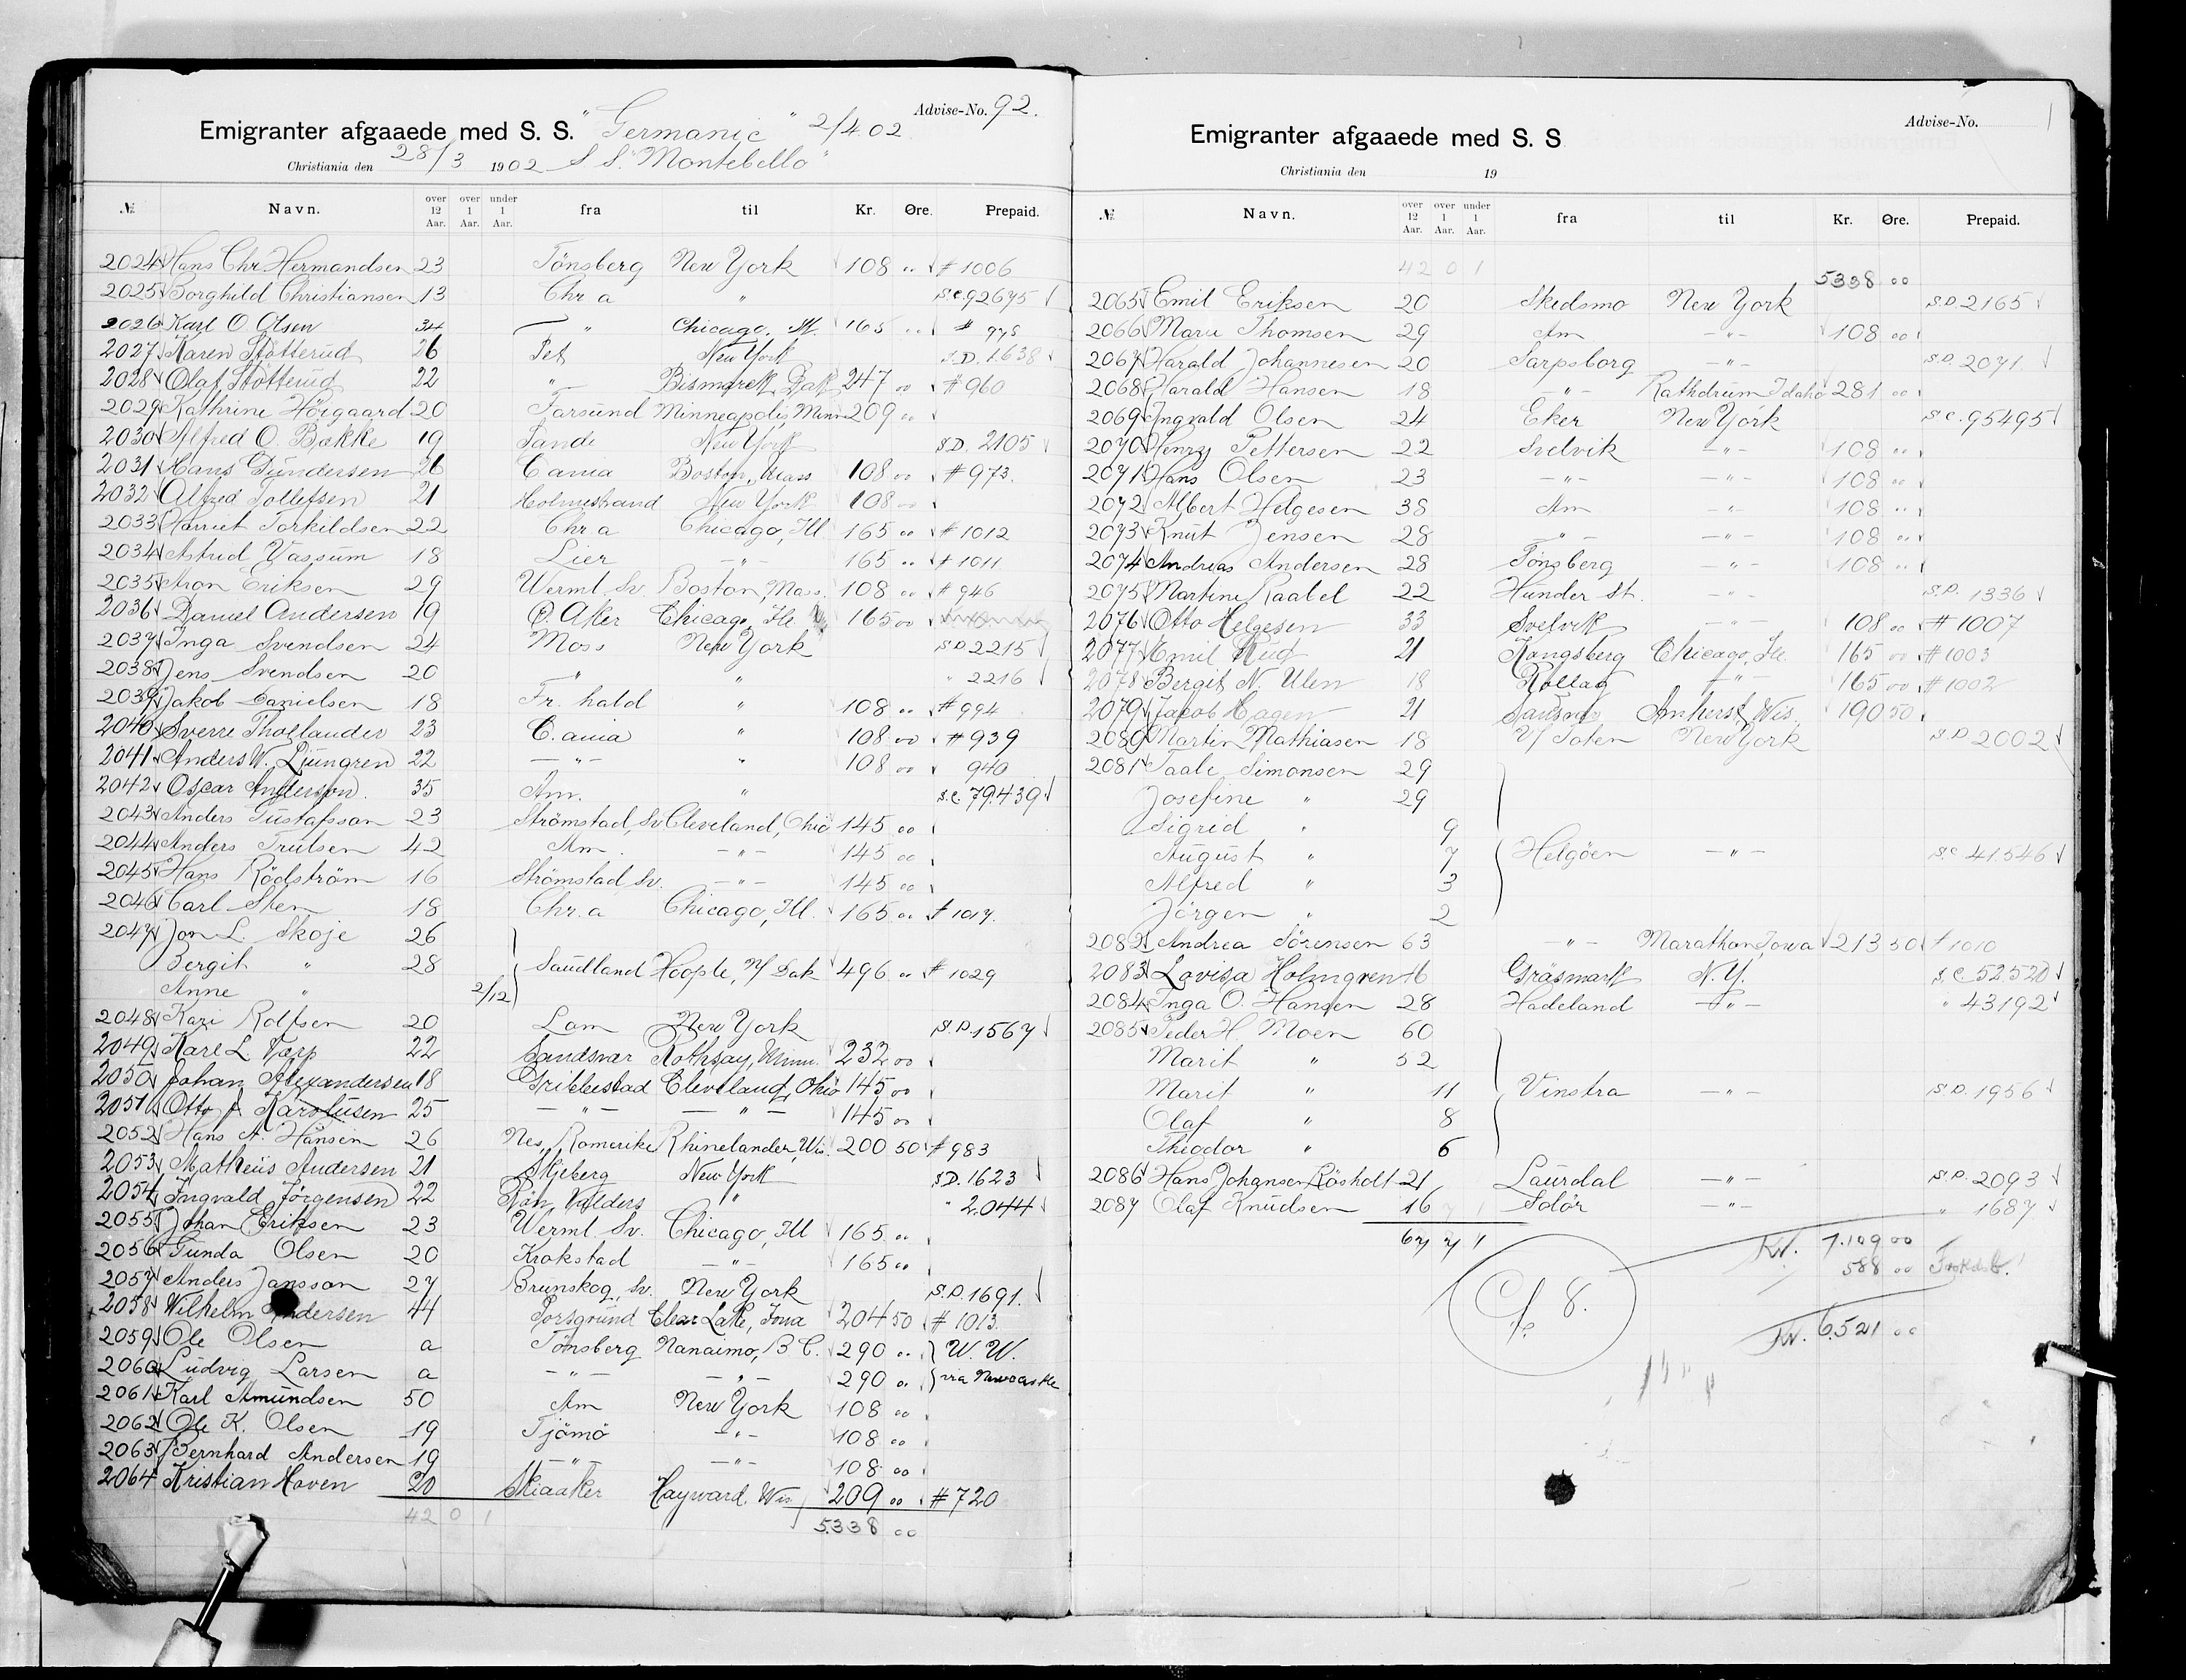 Advise-No. 92.
Emigranter afgaaede med S. S. "Germanic" 2/4 02
Christiania den 28/3 1902 S.S. "Montebello"
№ Navn. over 12 Aar. over 1 Aar. under 1 Aar. fra til Kr. Øre. Prepaid.
2024 Hans Chr. Hermandsen 23 Tönsberg New York 108 " # 1006
2025 Borghild Christiansen 13 Chr.a " S.C. 92675
2026 Karl O. Olsen 34 " Chicago, Ill. 165 " # 975
2027 Karen Stötterud 26 Fet New York S.D. 1638
2028 Olaf Stötterud 22 " Bismarck, Dak 247 00 # 960
2029 Kathrine Hörgaard 20 Farsund Minneapolis, Minn 209 00
2030 Alfred O. Bække 19 Sande New York S.D. 2105
2031 Hans Gundersen 26 C.ania Boston, Mass 108 00 # 973.
2032 Alfred Tollefsen 21 Holmestrand New York 108 00
2033 Harriet Torkildsen 22 Chr.a Chicago, Ill 165 00 # 1012
2034 Astrid Vassum 18 Lier - " - 165 " # 1011
2035 Aron Eriksen 29 Werml. Sv. Boston, Mass. 108 00 # 946
2036 Daniel Andersen 19 Ø. Aker Chicago, Ill. 165 00
2037 Inga Svendsen 24 Moss New York S.D. 2215
2038 Jens Svendsen 20 " " " 2216
2039 Jakob Danielsen 18 Fr. hald " 108 00 # 994
2040 Sverre Thollander 23 C.ania " 108 00 # 939
2041 Anders W. Ljungren 22 - " - " 108 00 940
2042 Oscar Anderson. 35 Am. " S.C. 79.439
2043 Anders Gustafsson 23 Strömstad, Sv Cleveland, Ohio 145 00
2044 Anders Trulsen 42 Am. - " - 145 00
2045 Hans Rödström 16 Strömstad Sv. - " - 145 00
2046 Carl Sten 18 Chr.a Chicago, Ill. 165 00 # 1017.
2047 Jon L. Skoje 26
Bergit " 28 Saudland Hoople, N/Dak 496 00 # 1029
Anne " 2/12
2048 Kari Rolfsen 20 Lom New York S.D. 1567
2049 Karl L. Værp 22 Sandsvær Rothsay, Minn. 232 00
2050 Johan Alexandersen 18 Gribbestad Cleveland, Ohio 145 00
2051 Otto J. Karolusen 25 - " - - " - 145 00
2052 Hans A. Hansen 26 Nes, Romerike Rhinelander, Wis. 200 50 # 983
2053 Matheus Andersen 21 Skjeberg New York S.D. 1623
2054 Ingvald Jörgensen 22 Valders " " 2.044
2055 Johan Eriksen 23 Werml. Sv. Chicago, Ill 165 00
2056 Gunda Olsen 20 Krokstad - " - 165 00
2057 Anders Jansson 27 Brunskog, Sv. New York S.D. 1691.
2058 Wilhelm Andersen 44 Porsgrund Clear Lake, Iowa 204 50 # 1013.
2059 Ole Olsen a Tönsberg Nanaimo, B.C. 290 00 W. W.
2060 Ludvig Larsen a - " - - " - 290 00 via Newcastle
2061 Karl Amundsen 50 Am New York 108 00
2062 Ole K. Olsen 19 Tjömö - " - 108 00
2063 Bernhard Andersen 19 - " - - " - 108 00
2064 Kristian Hoven 20 Skiaaker Hayward. Wis 209 00 # 720
42 0 1 5338 00
Advise-No.
Emigranter afgaaede med S. S
Christiania den 19
№ Navn. over 12 Aar. over 1 Aar. under 1 Aar. fra til Kr. Øre. Prepaid.
42 0 1 5338 00
2065 Emil Eriksen 20 Skedsmo New York S.D. 2165
2066 Marie Thomsen 29 Am - " - 108 00
2067 Harald Johannesen 20 Sarpsborg - " - S.D. 2071.
2068 Harald Hansen 18 - " - Rathdrum Idaho 281 00
2069 Ingvald Olsen 24 Eker New York S.C. 95495
2070 Henry Pettersen 22 Svelvik - " - 108 00
2071 Hans Olsen 23 - " - - " - 108 00
2072 Albert Helgesen 38 Am - " - 108 00
2073 Knut Jensen 28 - " - - " - 108 00
2074 Andreas Andersen 28 Tönsberg - " - 108 00
2075 Martine Raabel 22 Hunder st. - " - S.D. 1336
2076 Otto Helgesen 33 Svelvik - " - 108 00 # 1007
2077 Emil Rud 21 Kongsberg Chicago, Ill. 165 00 # 1003
2078 Bergit N. Ulen 18 Rollag - " - 165 00 # 1002
2079 Jacob Hagen 21 Amherst, Wis. 190 50
2080 Martin Mathiasen 18 V/ Toten New York S.D. 2002
2081 Taale Simonsen 29
Josefine " 29
Sigrid " 9
August " 7 Helgöen - " - S.C. 41.546
Alfred " 3
Jörgen " 2
2082 Andrea Sörensen 63 - " - Marathon, Iowa 213 50 # 1010
2083 Lovisa Holmgren 16 Gräsmark N.Y. S.C. 52.520
2084 Inga O. Hansen 28 Hadeland - " - " 43192
2085 Peder H. Moen 60
Marit " 52
Marit " 11 Vinstra - " - S.D. 1956
Olaf " 8
Theodor " 6
2086 Hans Johansen Rösholt 21 Laurdal - " - S.D. 2093
2087 Olaf Knudsen 16 Solör - " - " 1687
67 7 1 Kr. 7.109 00
588 00
8. Kr. 6.521 00